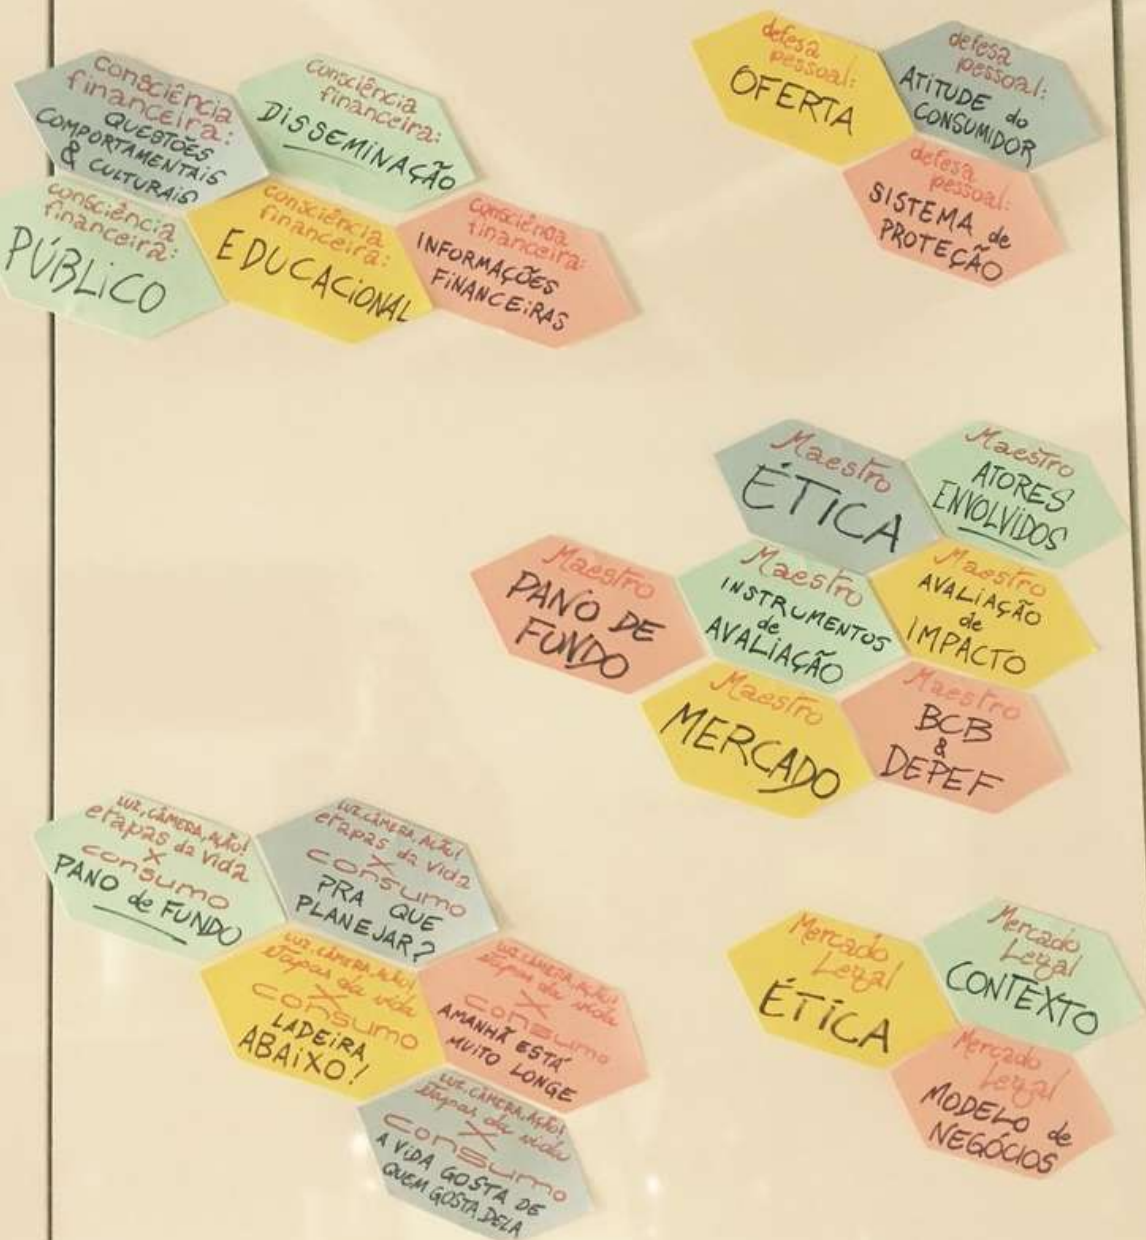 consciência
financeira:
QUESTÕES
COMPORTAMENTAIS
& CULTURAIS
consciência
financeira:
DISSEMINAÇÃO
consciência
financeira:
PÚBLICO
consciência
financeira:
EDUCACIONAL
consciência
financeira:
INFORMAÇÕES
FINANCEIRAS
defesa
pessoal:
OFERTA
defesa
pessoal:
ATITUDE do
CONSUMIDOR
defesa
pessoal:
SISTEMA de
PROTEÇÃO
Maestro
ÉTICA
Maestro
ATORES
ENVOLVIDOS
Maestro
PANO DE
FUNDO
Maestro
INSTRUMENTOS
de
AVALIAÇÃO
Maestro
AVALIAÇÃO
de
IMPACTO
Maestro
MERCADO
Maestro
BCB
&
DEPEF
LUZ, CÂMERA, AÇÃO!
etapas da vida
X
consumo
PANO de FUNDO
LUZ, CÂMERA, AÇÃO!
etapas da vida
X
consumo
PRA QUE
PLANEJAR?
LUZ, CÂMERA, AÇÃO!
etapas da vida
X
consumo
LADEIRA
ABAIXO!
LUZ, CÂMERA, AÇÃO!
etapas da vida
X
consumo
AMANHÃ ESTÁ
MUITO LONGE
LUZ, CÂMERA, AÇÃO!
etapas da vida
X
consumo
A VIDA GOSTA DE
QUEM GOSTA DELA
Mercado
Legal
ÉTICA
Mercado
Legal
CONTEXTO
Mercado
Legal
MODELO de
NEGÓCIOS